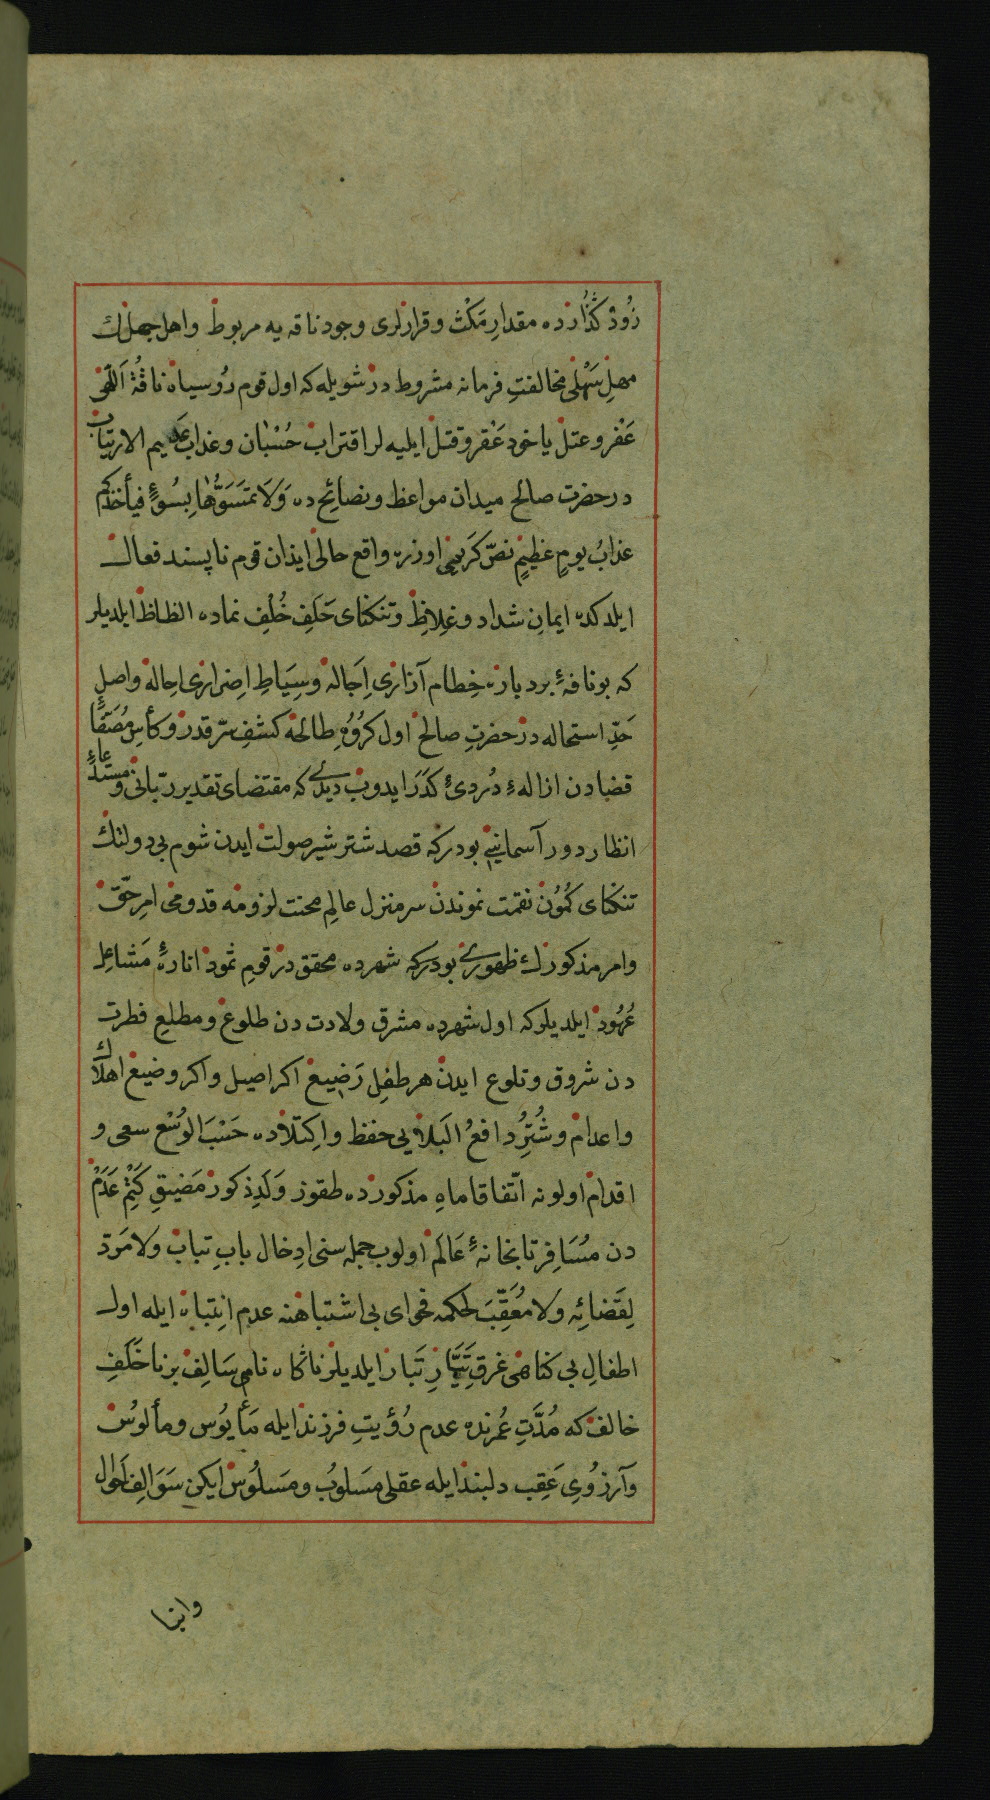 زُودْ كُذَارْده مقدارِ مَكْث وقرارلرى وجود ناقه يه مربوط واهل جهلك
مهلِ سَهْلى مخالفتِ فرمانه مشروط در شويله كه اول قوم رُوسياه ناقةُ اللّهى
عَفْر وعتل ياخود عَقْر وقتل ايليه لر اقتراب حُسْبَان وعذابِ عديم الارتياب
در حضرت صالح ميدان مواعظ ونصائحده وَلَا تمَسَوُّهَا بِسُوءٍ فيأخذكم
عذابُ يومٍ عظيمٍ نصّ كَريمى اوزره واقع حالى ايذان قوم ناپسند فعال
ايلدكده ايمانِ شداد وغِلاظ وتنكناى خَلَفِ خُلْفِ نماده الظاظ ايلديلر
كه بو ناقهٔ بردباره خِطام آزارى اِجَاله وسِيَاطِ اِضرارى احاله واصلِ
حَدِّ استحاله در حضرتِ صالح اول كروُهِ طالحه كشفِ سرّ قدر وكأسِ مُصَفَّاءِ
قضادن ازالهٔ دُردىٔ كَدَر ايدوب ديدى كه مقتضاى تقدير ربّانى ومستدعاءِ
انظار دور آسمانى بودركه قصد شتر شير صولت ايدن شوم بى دولتك
تنكناى كُمُون نقمت نموندن سرمنزل عالمِ محنت لزومه قدومى امرِ حقّ
وامر مذكورك ظهورى بودركه شهرده محققدر قومِ ثمود انارهٔ مَشاعلِ
عُهُود ايلديلر كه اول شهرده مشرق ولادت دن طلوع ومطلعِ فطرت
دن شروق وتلوع ايدن هر طفلِ رَضيع اكر اصيل واكر وضيع اهلاك
واعدام وشُتُرِ دافعُ البَلايى حفظ واِكتلاده حَسْبَ الوُسْع سعى و
اقدام اولونه اتّفاقا ماهِ مذكورده طقوز وَلَدِ ذكور مَضيقِ كَتْمِ عَدَمْ
دن مُسَافِر تابخانهٔ عَالَم اولوب جمله سنى اِدخال بابِ تباب ولا مَردّ
لِقَضائِه ولا مُعَقِّبَ لحكمه فحواى بى اشتباهنه عدم انتباه ايله اول
اطفالِ بى كناهى غرقِ تَيَّارِ تَبار ايلديلر ناكاه نامى سَالِف بر ناخَلَفِ
خالف كه مُدَّتِ عُمرنده عدم رُؤيتِ فرزند ايله مَأيُوس ومألوُس
وآرزُوىِ عَقِبِ دلبند ايله عقلى مَسلوُبُ ومَسلوُس ايكن سَوَالِف احوال
وابنا